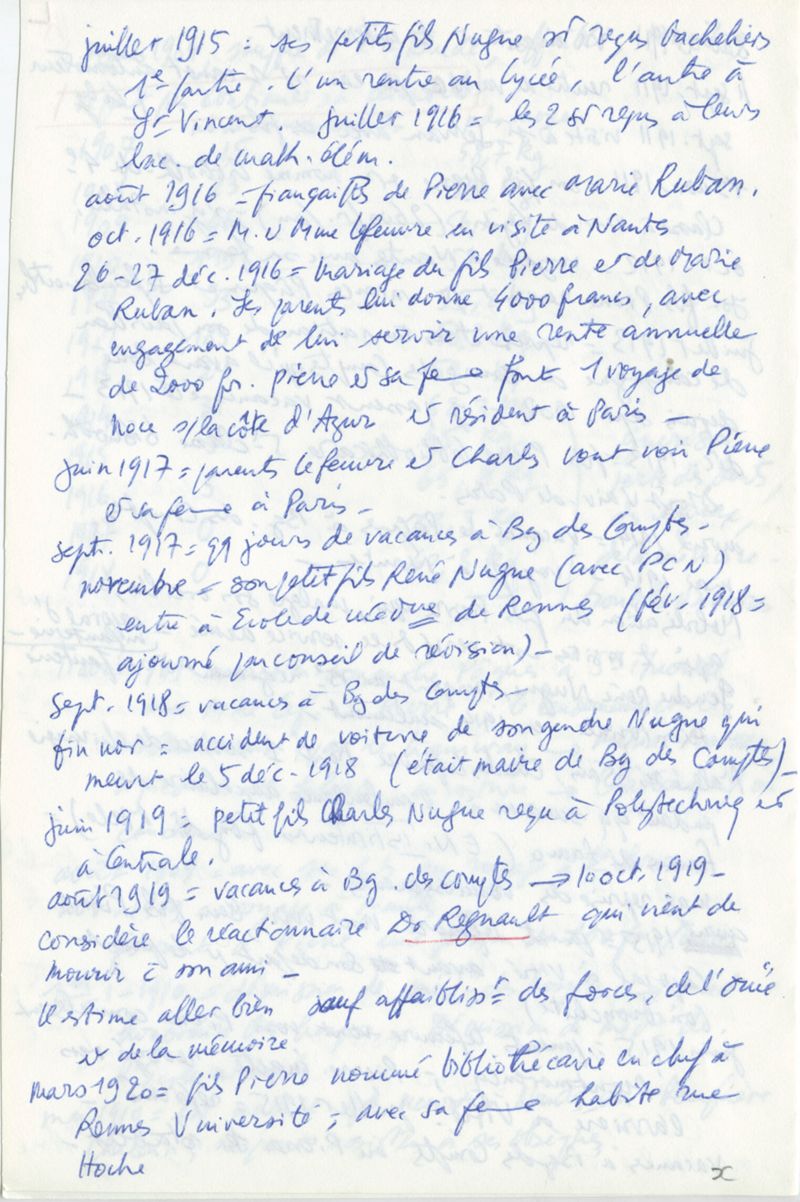 juillet 1915 = ses petits fils Nugue st reçus bacheliers
1e partie. L'un rentre au lycée, l'autre à
St Vincent. juillet 1916 = les 2 st reçus à leurs
bac. de math. élém.
août 1916 = fiançailles de Pierre avec Marie Ruban.
oct. 1916 = M. & Mme Lefeuvre en visite à Nantes
26-27 déc. 1916 = mariage du fils Pierre et de Marie
Ruban. Ses parents lui donne 4000 francs, avec
engagement de lui servir une rente annuelle
de 2000 fr. Pierre et sa fe font 1 voyage de
noce s/la côte d'Azur et résident à Paris —
juin 1917 = parents Lefeuvre et Charles vont voir Pierre
et sa fe à Paris —
sept. 1917 = 99 jours de vacances à Bg des Comptes —
novembre = son petit fils René Nugue (avec PCN)
entre à Ecole de médne de Rennes (fév. 1918 =
ajourné par conseil de révision) —
sept. 1918 = vacances à Bg des Comptes —
fin nov. = accident de voiture de son gendre Nugue qui
meurt le 5 déc. 1918 (était maire de Bg des Comptes) —
juin 1919 = petit fils Charles Nugue reçu à Polytechniq et
à Centrale.
août 1919 = vacances à Bg. des Comptes → 10 oct. 1919 —
considère le réactionnaire Dr Regnault qui vient de
mourir c son ami —
Il estime aller bien sauf affaiblisst des forces, de l'ouïe
et de la mémoire
mars 1920 = fils Pierre nommé bibliothécaire en chef à
Rennes Université ; avec sa fe habite rue
Hoche